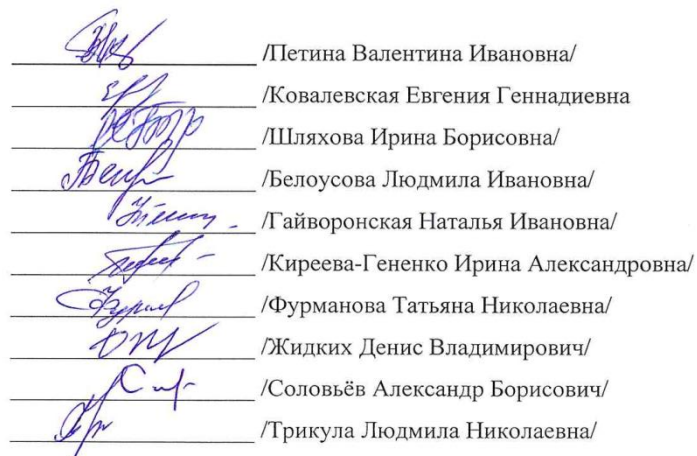 /Петина Валентина Ивановна/
/Ковалевская Евгения Геннадиевна
/Шляхова Ирина Борисовна/
/Белоусова Людмила Ивановна/
/Гайворонская Наталья Ивановна/
/Киреева-Гененко Ирина Александровна/
/Фурманова Татьяна Николаевна/
/Жидких Денис Владимирович/
/Соловьёв Александр Борисович/
/Трикула Людмила Николаевна/